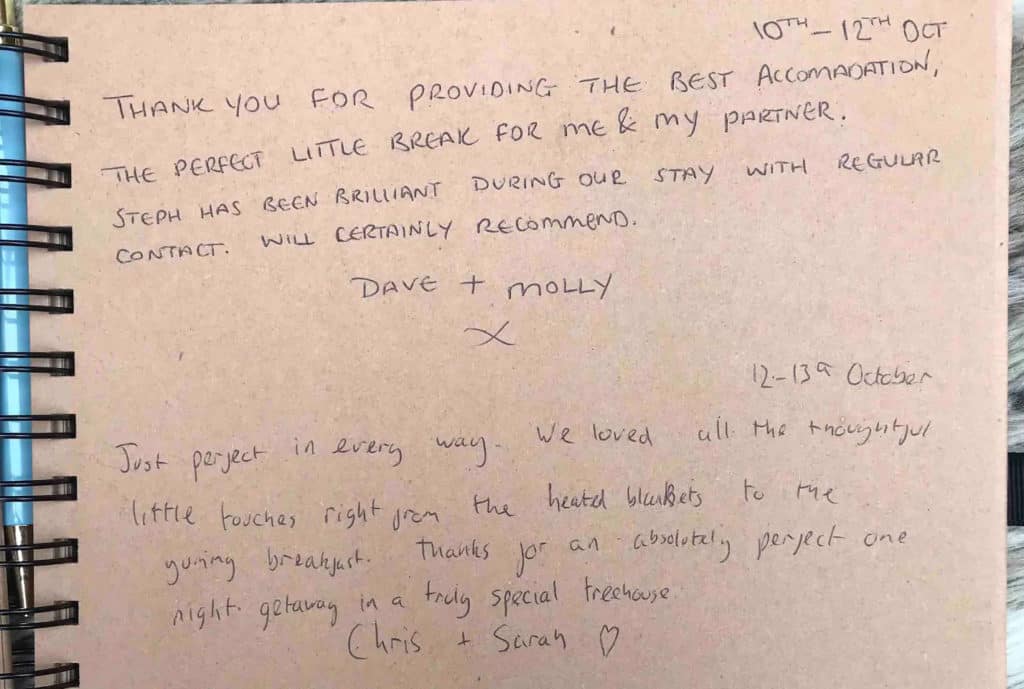 10TH - 12TH OCT
THANK YOU FOR PROVIDING THE BEST ACCOMADATION,
THE PERFECT LITTLE BREAK FOR ME & MY PARTNER.
STEPH HAS BEEN BRILLIANT DURING OUR STAY WITH REGULAR
CONTACT. WILL CERTAINLY RECOMMEND.
DAVE + MOLLY
X
12.-13 October
Just perfect in every way. We loved all the thoughtful
little touches right from the heated blankets to the
yummy breakfast. Thanks for an absolutely perfect one
night getaway in a truly special treehouse.
Chris + Sarah ♡